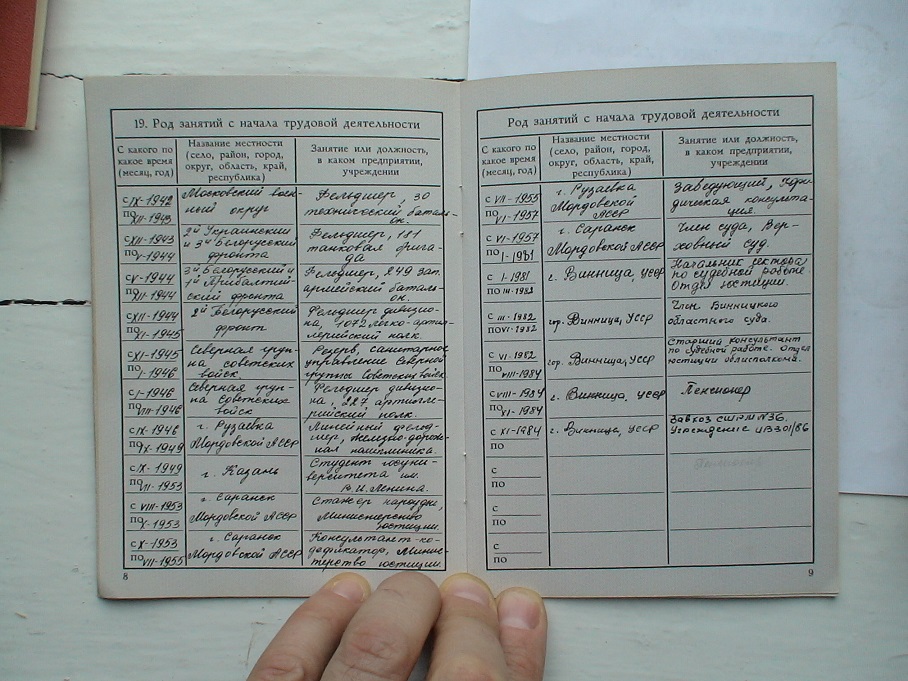 19. Род занятий с начала трудовой деятельности
С какого по какое время (месяц, год)
Название местности (село, район, город, округ, область, край, республика)
Занятие или должность, в каком предприятии, учреждении
с IX-1942 по XII-1943
Московский воен-
ный округ
Фельдшер, 30
технический баталь-
он.
с XII-1943 по V-1944
2й Украинский
и 3й Белорусский
фронта
Фельдшер, 181
танковая брига-
да
с V-1944 по XII-1944
3й Белорусский и
1й Прибалтий-
ский фронта
Фельдшер, 249 зап.
армейский баталь-
он.
с XII-1944 по XI-1945
2й Белорусский
фронт
Фельдшер дивизио-
на, 1072 легко-артил-
лерийский полк.
с XI-1945 по I-1946
Северная груп-
па советских
войск
Резерв, санитарное
управление Северной
группы Советских войск
с I-1946 по VIII-1946
Северная груп-
па Советских
войск
Фельдшер дивизио-
на, 227 артилле-
рийский полк.
с IX-1946 по IX-1949
г. Рузаевка
Мордовской АССР
Линейный фельд-
шер, железно-дорож-
ная
с IX-1949 по VII-1953
г. Казань
Студент госуни-
верситета им.
В.И. Ленина.
с VIII-1953 по X-1953
г. Саранск
Мордовской АССР
Стажер нарсудьи,
Министерство
юстиции.
с X-1953 по VII-1955
г. Саранск
Мордовской АССР
Консультант-ко-
дификатор, Минис-
терство юстиции.
8
Род занятий с начала трудовой деятельности
С какого по какое время (месяц, год)
Название местности (село, район, город, округ, область, край, республика)
Занятие или должность, в каком предприятии, учреждении
с VII-1955 по VI-1957
г. Рузаевка
Мордовской
АССР
Заведующий, Юри-
дическая консульта-
ция.
с VI-1957 по I-1981
г. Саранск
Мордовской АССР
Член суда, Вер-
ховный суд.
с I-1981 по III-1982
г. Винница, УССР
Начальник сектора
по судебной работе.
Отдел юстиции.
с III-1982 по VI-1982
гор. Винница, УССР
Член Винницкого
областного суда.
с VI-1982 по VIII-1984
гор. Винница, УССР
Старший консультант
по судебной работе. Отдел
юстиции облисполкома.
с VIII-1984 по XI-1984
г. Винница, УССР
Пенсионер
с XI-1984 по
г. Винница, УССР
Завхоз СШРМ №36.
Учреждение ИВ301/86
с
по
с
по
с
по
9